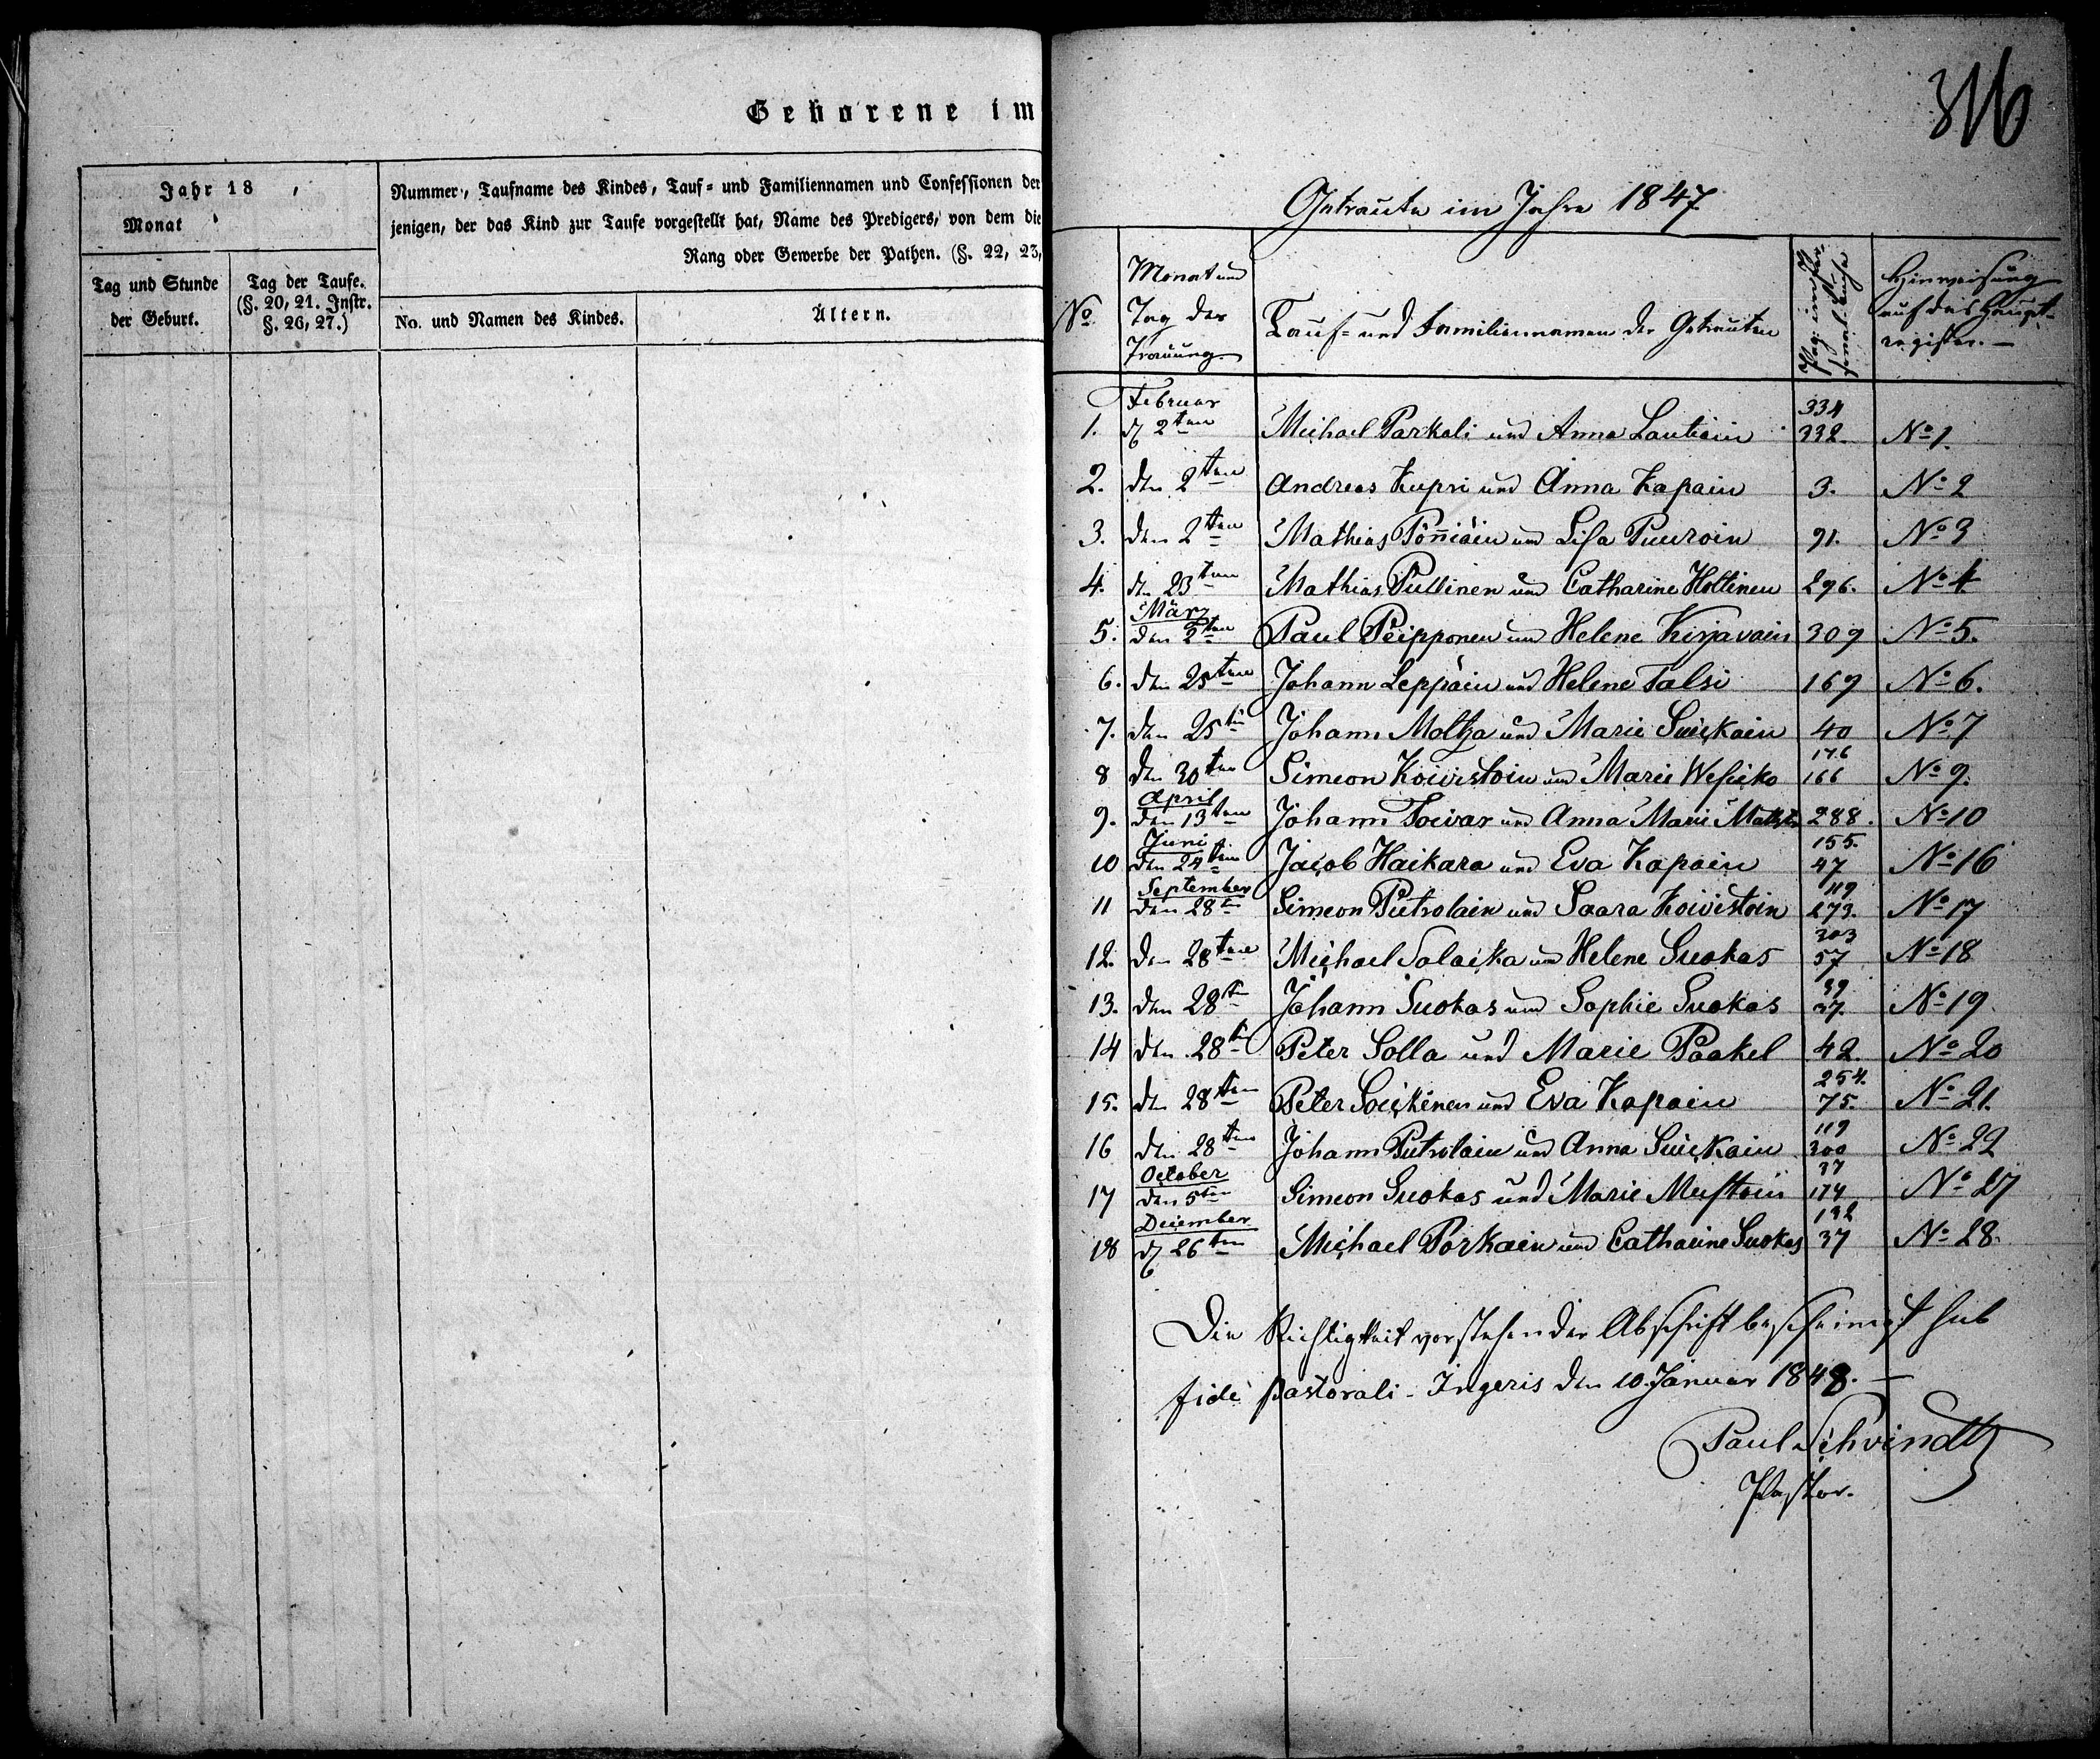 Geborene im
Jahr 18 ,
Monat
Nummer, Taufname des Kindes, Tauf- und Familiennamen und Confessionen der
jenigen, der das Kind zur Taufe vorgestellt hat, Name des Predigers, von dem die
Rang oder Gewerbe der Pathen. (§. 22, 23,
Tag und Stunde
der Geburt.
Tag der Taufe.
(§. 20, 21. Instr.
§. 26, 27.)
No. und Namen des Kindes.
Ältern.
316
Getraute im Jahre 1847
No
Monat und
Tag der
Trauung.
Tauf- und Familiennamen der Getrauten
Pag: im Per-
sonal-Buche
Hinweisung
auf das Haupt-
register. —
Februar 334
1. d. 2ten Michael Parkali und Anna Lautiain 332. No 1.
2. den 2ten Andreas Kupri und Anna Kapain 3. No 2
3. den 2ten Mathias Pönniäin und Lisa Puuroin 91. No 3
4. den 23ten Mathias Pullinen und Catharine Holtinen 296. No 4.
März
5. den 2ten Paul Peipponen und Helene Kirjavain 309 No 5.
6. den 25ten Johann Leppäin und Helene Talsi 169 No 6.
7. den 25ten Johann Moltza und Marie Suickain 40 No 7
176
8 den 30ten Simeon Koivistoin und Marie Wesicko 166 No 9.
April
9. den 13ten Johann Toivar und Anna Marie 288. No 10
Juni 155.
10 den 24ten Jacob Haikara und Eva Kapain 47 No 16
September 119
11 den 28ten Simeon Putrolain und Saara Koivistoin 273. No 17
303
12. den 28ten Michael Solaicka und Helene Suokas 57 No 18
39
13. den 28ten Johann Suokas und Sophie Suokas 37. No 19.
14 den 28ten Peter Solla und Marie Paakel 42. No 20
254.
15. den 28ten Peter Soickinen und Eva Kapain 75. No 21.
119
16 den 28ten Johann Putrolain und Anna Suickain 300 No 22
October 37
17 den 5ten Simeon Suokas und Marie Mustoin 174 No 27
December 192
18 d. 26ten Michael Porkain und Catharine Suokas 37 No 28.
Die Richtigkeit vorstehender Abschrift bescheinigt sub
fide pastorali. Ingeris den 10. Januar 1848. —
Paul Schvindt
Pastor.